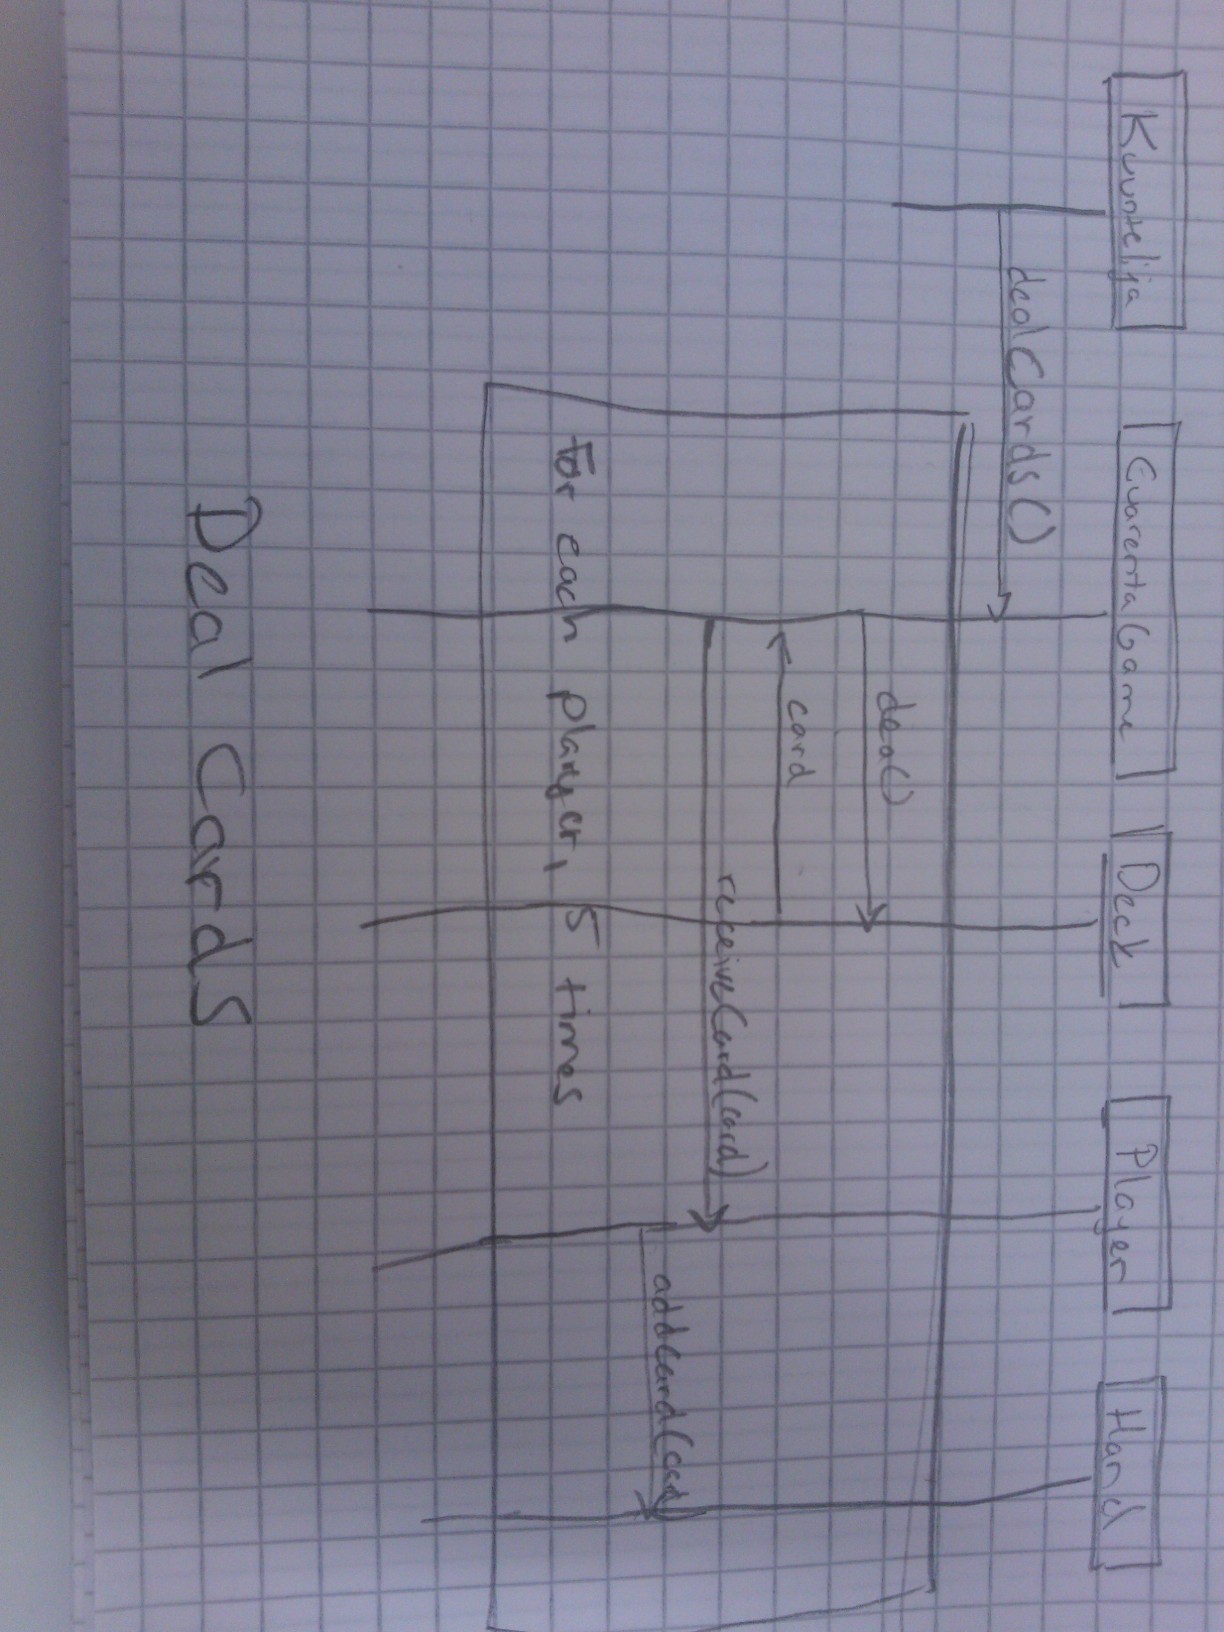 Kuuntelija
Cuarenta Game
Deck
Player
Hand
dealCards()
deal()
card
receiveCard(card)
addCard(card)
For each player, 5 times
Deal Cards